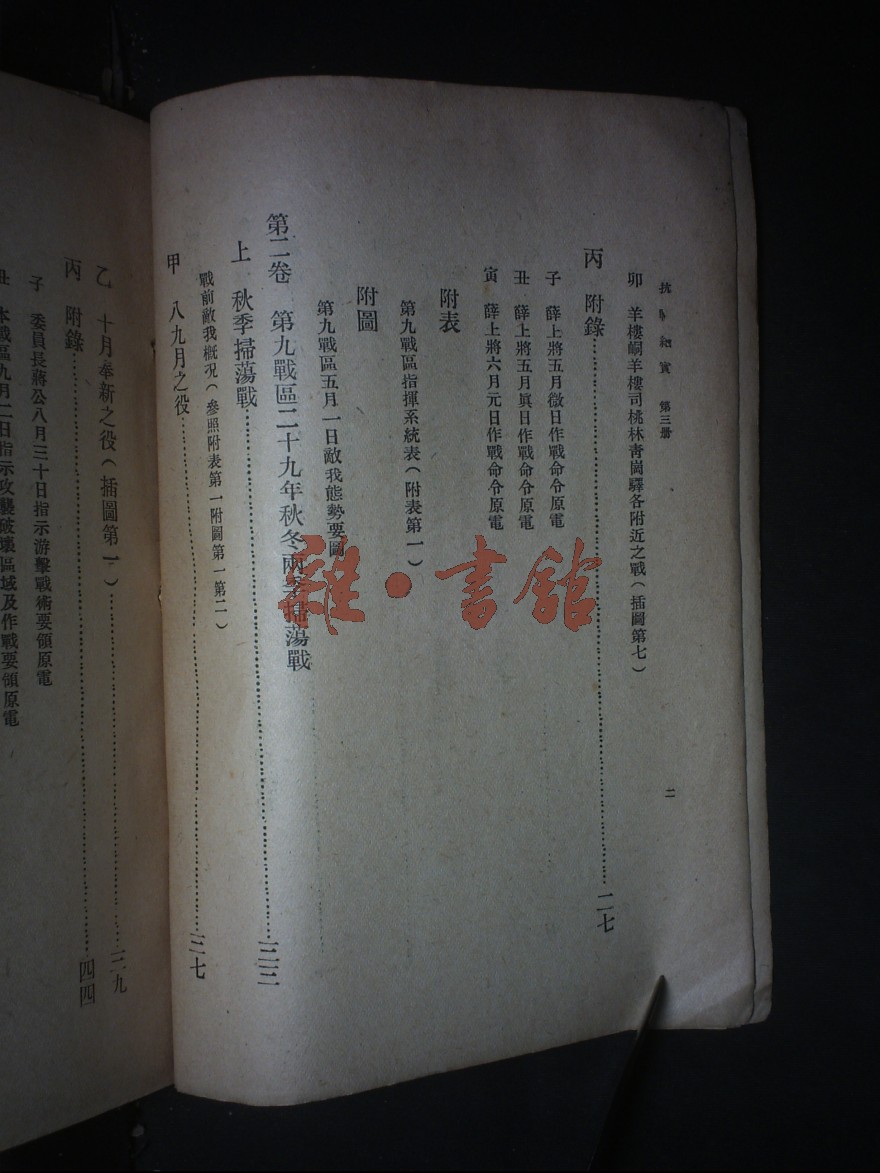 抗 紀實 第三册
二
卯 羊樓峒羊樓司桃林青崗驛各附近之戰（插圖第七）
丙 附錄……二七
子 薛上將五月微日作戰命令原電
丑 薛上將五月眞日作戰命令原電
寅 薛上將六月元日作戰命令原電
附表
第九戰區指揮系統表（附表第一）
附圖
第九戰區五月一日敵我態勢要圖
第二卷 第九戰區二十九年秋冬兩季掃蕩戰
上 秋季掃蕩戰……三三
戰前敵我概况（參照附表第一附圖第一第二）
甲 八九月之役……三七
乙 十月奉新之役（插圖第一）……三九
丙 附錄……四四
子 委員長蔣公八月三十日指示游擊戰術要領原電
丑 本戰區九月二日指示攻襲破壞區域及作戰要領原電
雜·書館